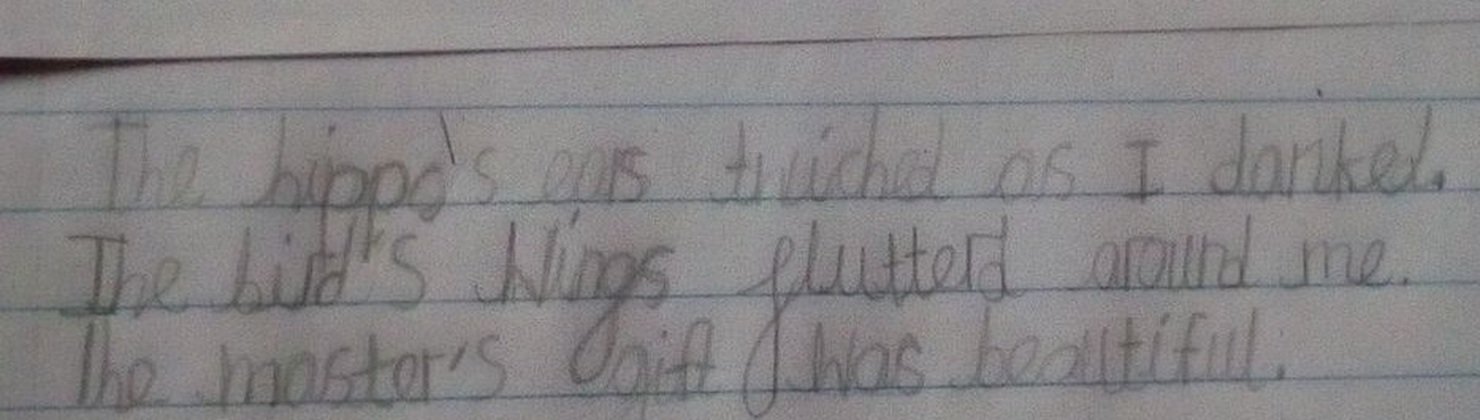 The hippo's ears twiched as I danked.
The bird's Wings flutterd around me.
The master's gift was beautiful.